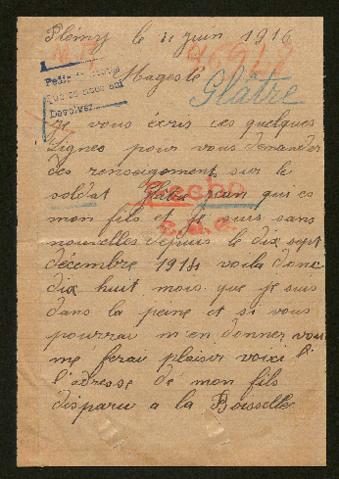 Plémy le 11 juin 1916
96942
Magesté
Glâtre
Devolver
je vous écris ces quelques
Lignes pour vous demander
des renseignement sur le
soldat Glatre jean qui es
mon fils et je suis sans
nouvelles depuis le dix sept
décembre 1914 voila donc
dix huit mois que je suis
dans la peine et si vous
pourrau m en donner vous
me ferau plaisir voici l
l adresse de mon fils
disparu a la Boisselle